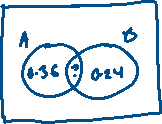 A B
0.36 ? 0.24